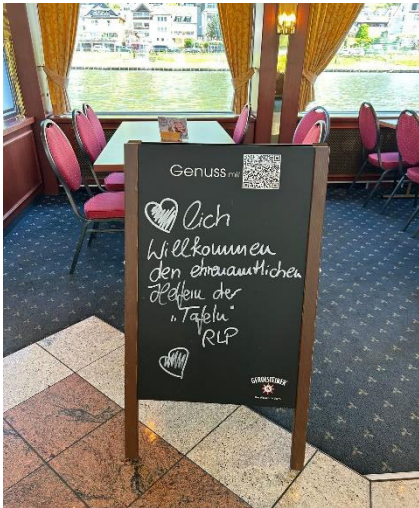 Genuss mit
lich
Willkommen
den ehrenamtlichen
Helfern der
„Tafeln"
RLP
GEROLSTEINER